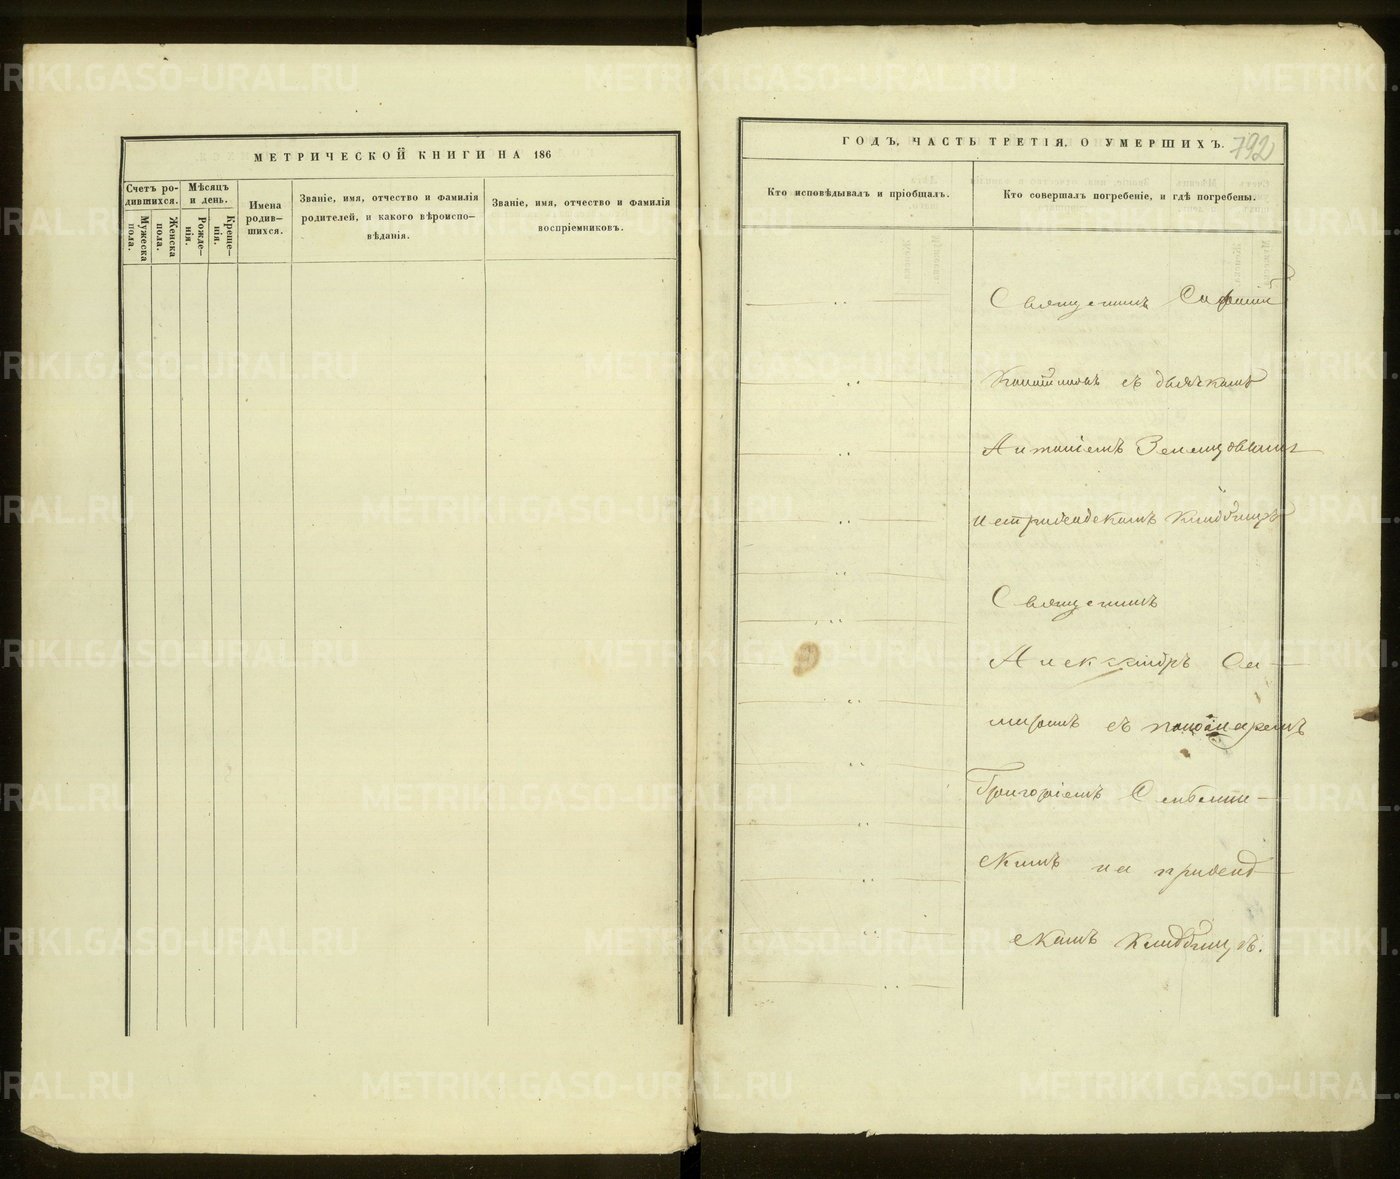 МЕТРИЧЕСКОЙ КНИГИ НА 186
Счетъ ро-
дившихся.
Мужеска
пола.
Женска
пола.
Мѣсяцъ
и день.
Рожде-
нія.
Креще-
нія.
Имена
родив-
шихся.
Званіе, имя, отчество и фамилія
родителей, и какого вѣроиспо-
вѣданія.
Званіе, имя, отчество и фамилія
воспріемниковъ.
ГОДЪ, ЧАСТЬ ТРЕТІЯ, О УМЕРШИХЪ.
792
Кто исповѣдывалъ и пріобщалъ.
Кто совершалъ погребеніе, и гдѣ погребены.
Священникъ
съ дьячкомъ
Антоніемъ
кладбищѣ
Священникъ
Александръ Са-
съ пономаремъ
Григоріемъ
скимъ на приход-
скомъ кладбищѣ.
METRIKI.GASO-URAL.RU